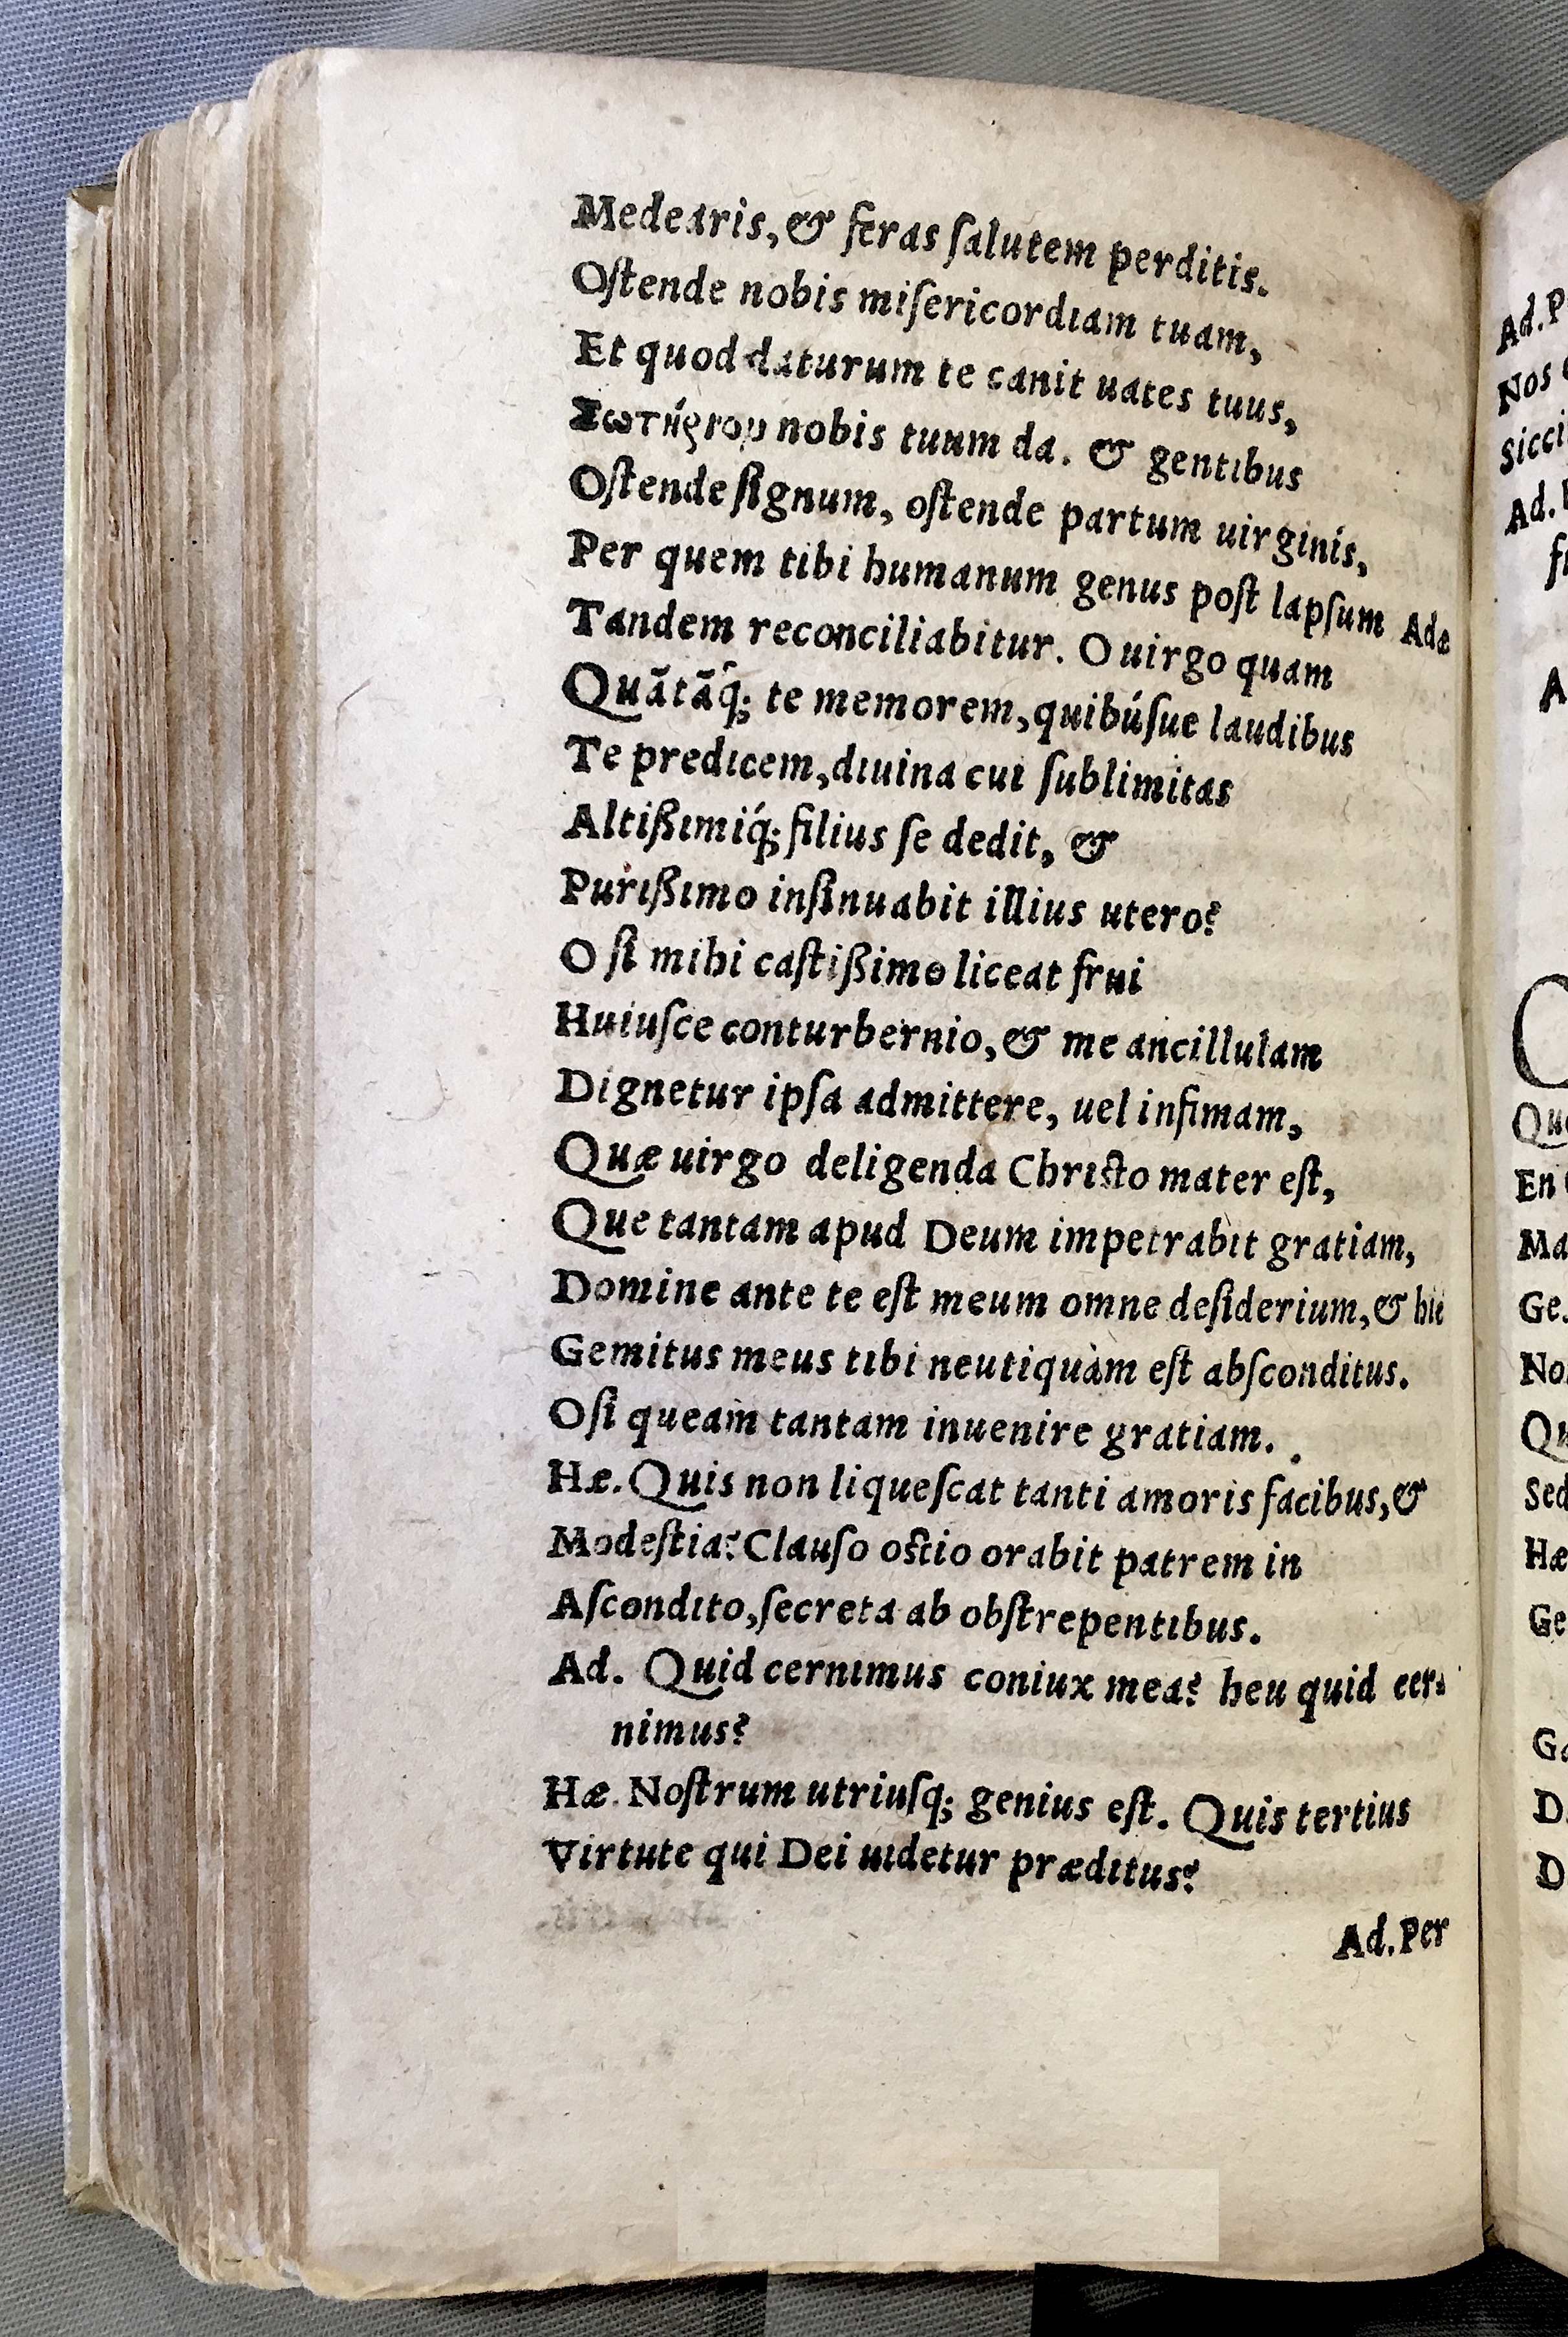 Medearis, & feras ſalutem perditis.
Oſtende nobis miſericordiam tuam,
Et quod daturum te canit uates tuus,
Σωτήριον nobis tuum da. & gentibus
Oſtende ſignum, oſtende partum uirginis,
Per quem tibi humanum genus poſt lapſum Adæ
Tandem reconciliabitur. O uirgo quam
Quãtãq́; te memorem, quibúſue laudibus
Te predicem, diuina cui ſublimitas
Altißimiq́; filius ſe dedit, &
Purißimo inſinuabit illius utero?
O ſi mihi caſtißimo liceat frui
Huiuſce conturbernio, & me ancillulam
Dignetur ipſa admittere, uel infimam,
Quæ uirgo deligenda Chriſto mater eſt,
Que tantam apud Deum impetrabit gratiam,
Domine ante te eſt meum omne deſiderium, & hic
Gemitus meus tibi neutiquàm eſt abſconditus.
O ſi queam tantam inuenire gratiam.
Hæ. Quis non liqueſcat tanti amoris facibus, &
Modeſtia? Clauſo oſtio orabit patrem in
Aſcondito, ſecreta ab obſtrepentibus.
Ad. Quid cernimus coniux mea? heu quid cer-
nimus?
Hæ. Noſtrum utriuſq; genius eſt. Quis tertius
Virtute qui Dei uidetur præditus?
Ad. Per
Ad. P
Nos
Sicci
Ad.
A
C
Qu
En
Ma
Ge.
No
Qu
Sed
Hæ
Ge
Ga
D
D